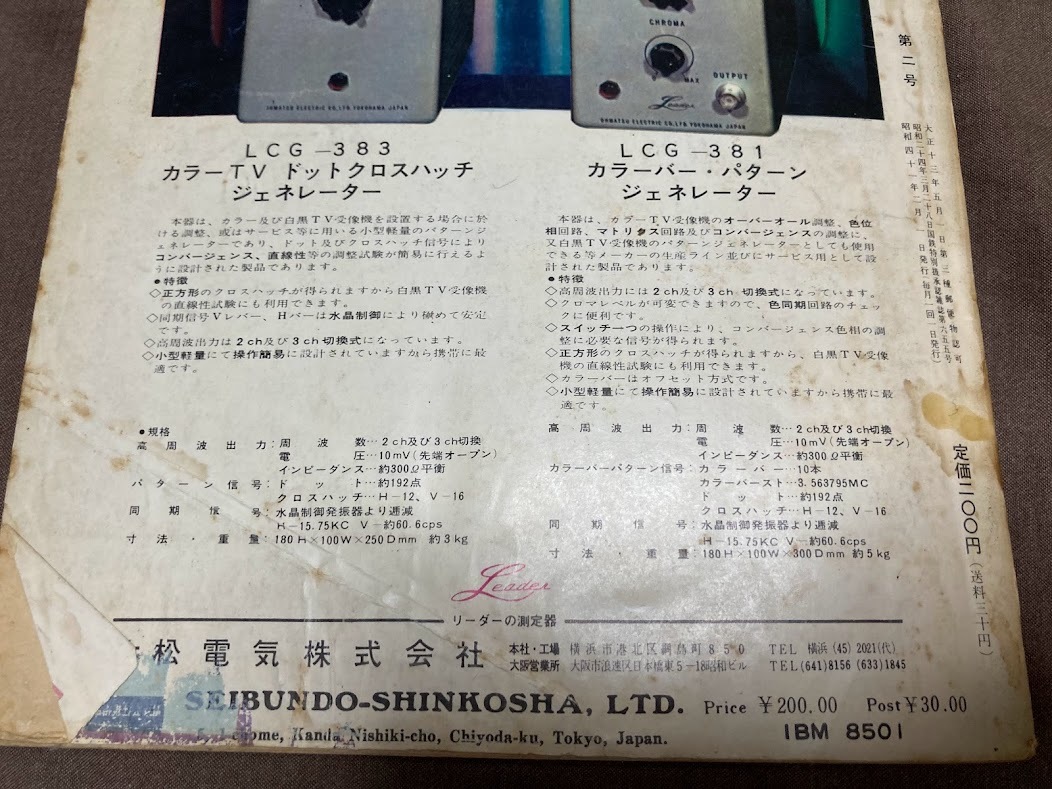 CHROMA
MAX
OUTPUT
Leader
OHMATSU ELECTRIC CO., LTD. YOKOHAMA JAPAN
OHMATSU ELECTRIC CO., LTD. YOKOHAMA JAPAN
LCG—383
カラーTV ドットクロスハッチ
ジェネレーター
本器は、カラー及び白黒TV受像機を設置する場合に於
ける調整、或はサービス等に用いる小型軽量のパターンジ
ェネレーターであり、ドット及びクロスハッチ信号により
コンバージェンス、直線性等の調整試験が簡易に行えるよ
うに設計された製品であります。
●特徴
◇正方形のクロスハッチが得られますから白黒TV受像機
の直線性試験にも利用できます。
◇同期信号Vレバー、Hバーは水晶制御により極めて安定
です。
◇高周波出力は2ch及び3ch切換式になっています。
◇小型軽量にて操作簡易に設計されていますから携帯に最
適です。
●規格
高周波出力:周波数…2ch及び3ch切換
電圧…10mV(先端オープン)
インピーダンス…約300Ω平衡
パターン信号:ドット…約192点
クロスハッチ…H-12、V-16
同期信号:水晶制御発振器より逓減
H-15.75KC V-約60.6cps
寸法・重量:180H×100W×250Dmm 約3kg
LCG—381
カラーバー・パターン
ジェネレーター
本器は、カラーTV受像機のオーバーオール調整、色位
相回路、マトリクス回路及びコンバージェンスの調整に、
又白黒TV受像機のパターンジェネレーターとしても使用
できる等メーカーの生産ライン並びにサービス用として設
計された製品であります。
●特徴
◇高周波出力には2ch及び3ch切換式になっています。
◇クロマレベルが可変できますので、色同期回路のチェッ
クに便利です。
◇スイッチ一つの操作により、コンバージェンス色相の調
整に必要な信号が得られます。
◇正方形のクロスハッチが得られますから、白黒TV受像
機の直線性試験にも利用できます。
◇カラーバーはオフセット方式です。
◇小型軽量にて操作簡易に設計されていますから携帯に最
適です。
高周波出力:周波数…2ch及び3ch切換
電圧…10mV(先端オープン)
インピーダンス…約300Ω平衡
カラーバーパターン信号:カラーバー…10本
カラーバースト…3.563795MC
ドット…約192点
クロスハッチ…H-12、V-16
同期信号:水晶制御発振器より逓減
H-15.75KC V-約60.6cps
寸法・重量:180H×100W×300Dmm 約5kg
第二号
大正十三年五月一日第三種郵便物認可
昭和二十四年三月二十八日国鉄特別扱承認雑誌第六五五号
昭和四十一年二月一日発行(毎月一回一日発行)
定価二〇〇円(送料三十円)
Leader
リーダーの測定器
松電気株式会社
本社・工場 横浜市港北区綱島町850 TEL 横浜(45)2021(代)
大阪営業所 大阪市浪速区日本橋東5-18昭和ビル TEL(641)8156 (633)1845
SEIBUNDO-SHINKOSHA, LTD. Price ¥200.00 Post¥30.00
Kanda Nishiki-cho, Chiyoda-ku, Tokyo, Japan.
IBM 8501